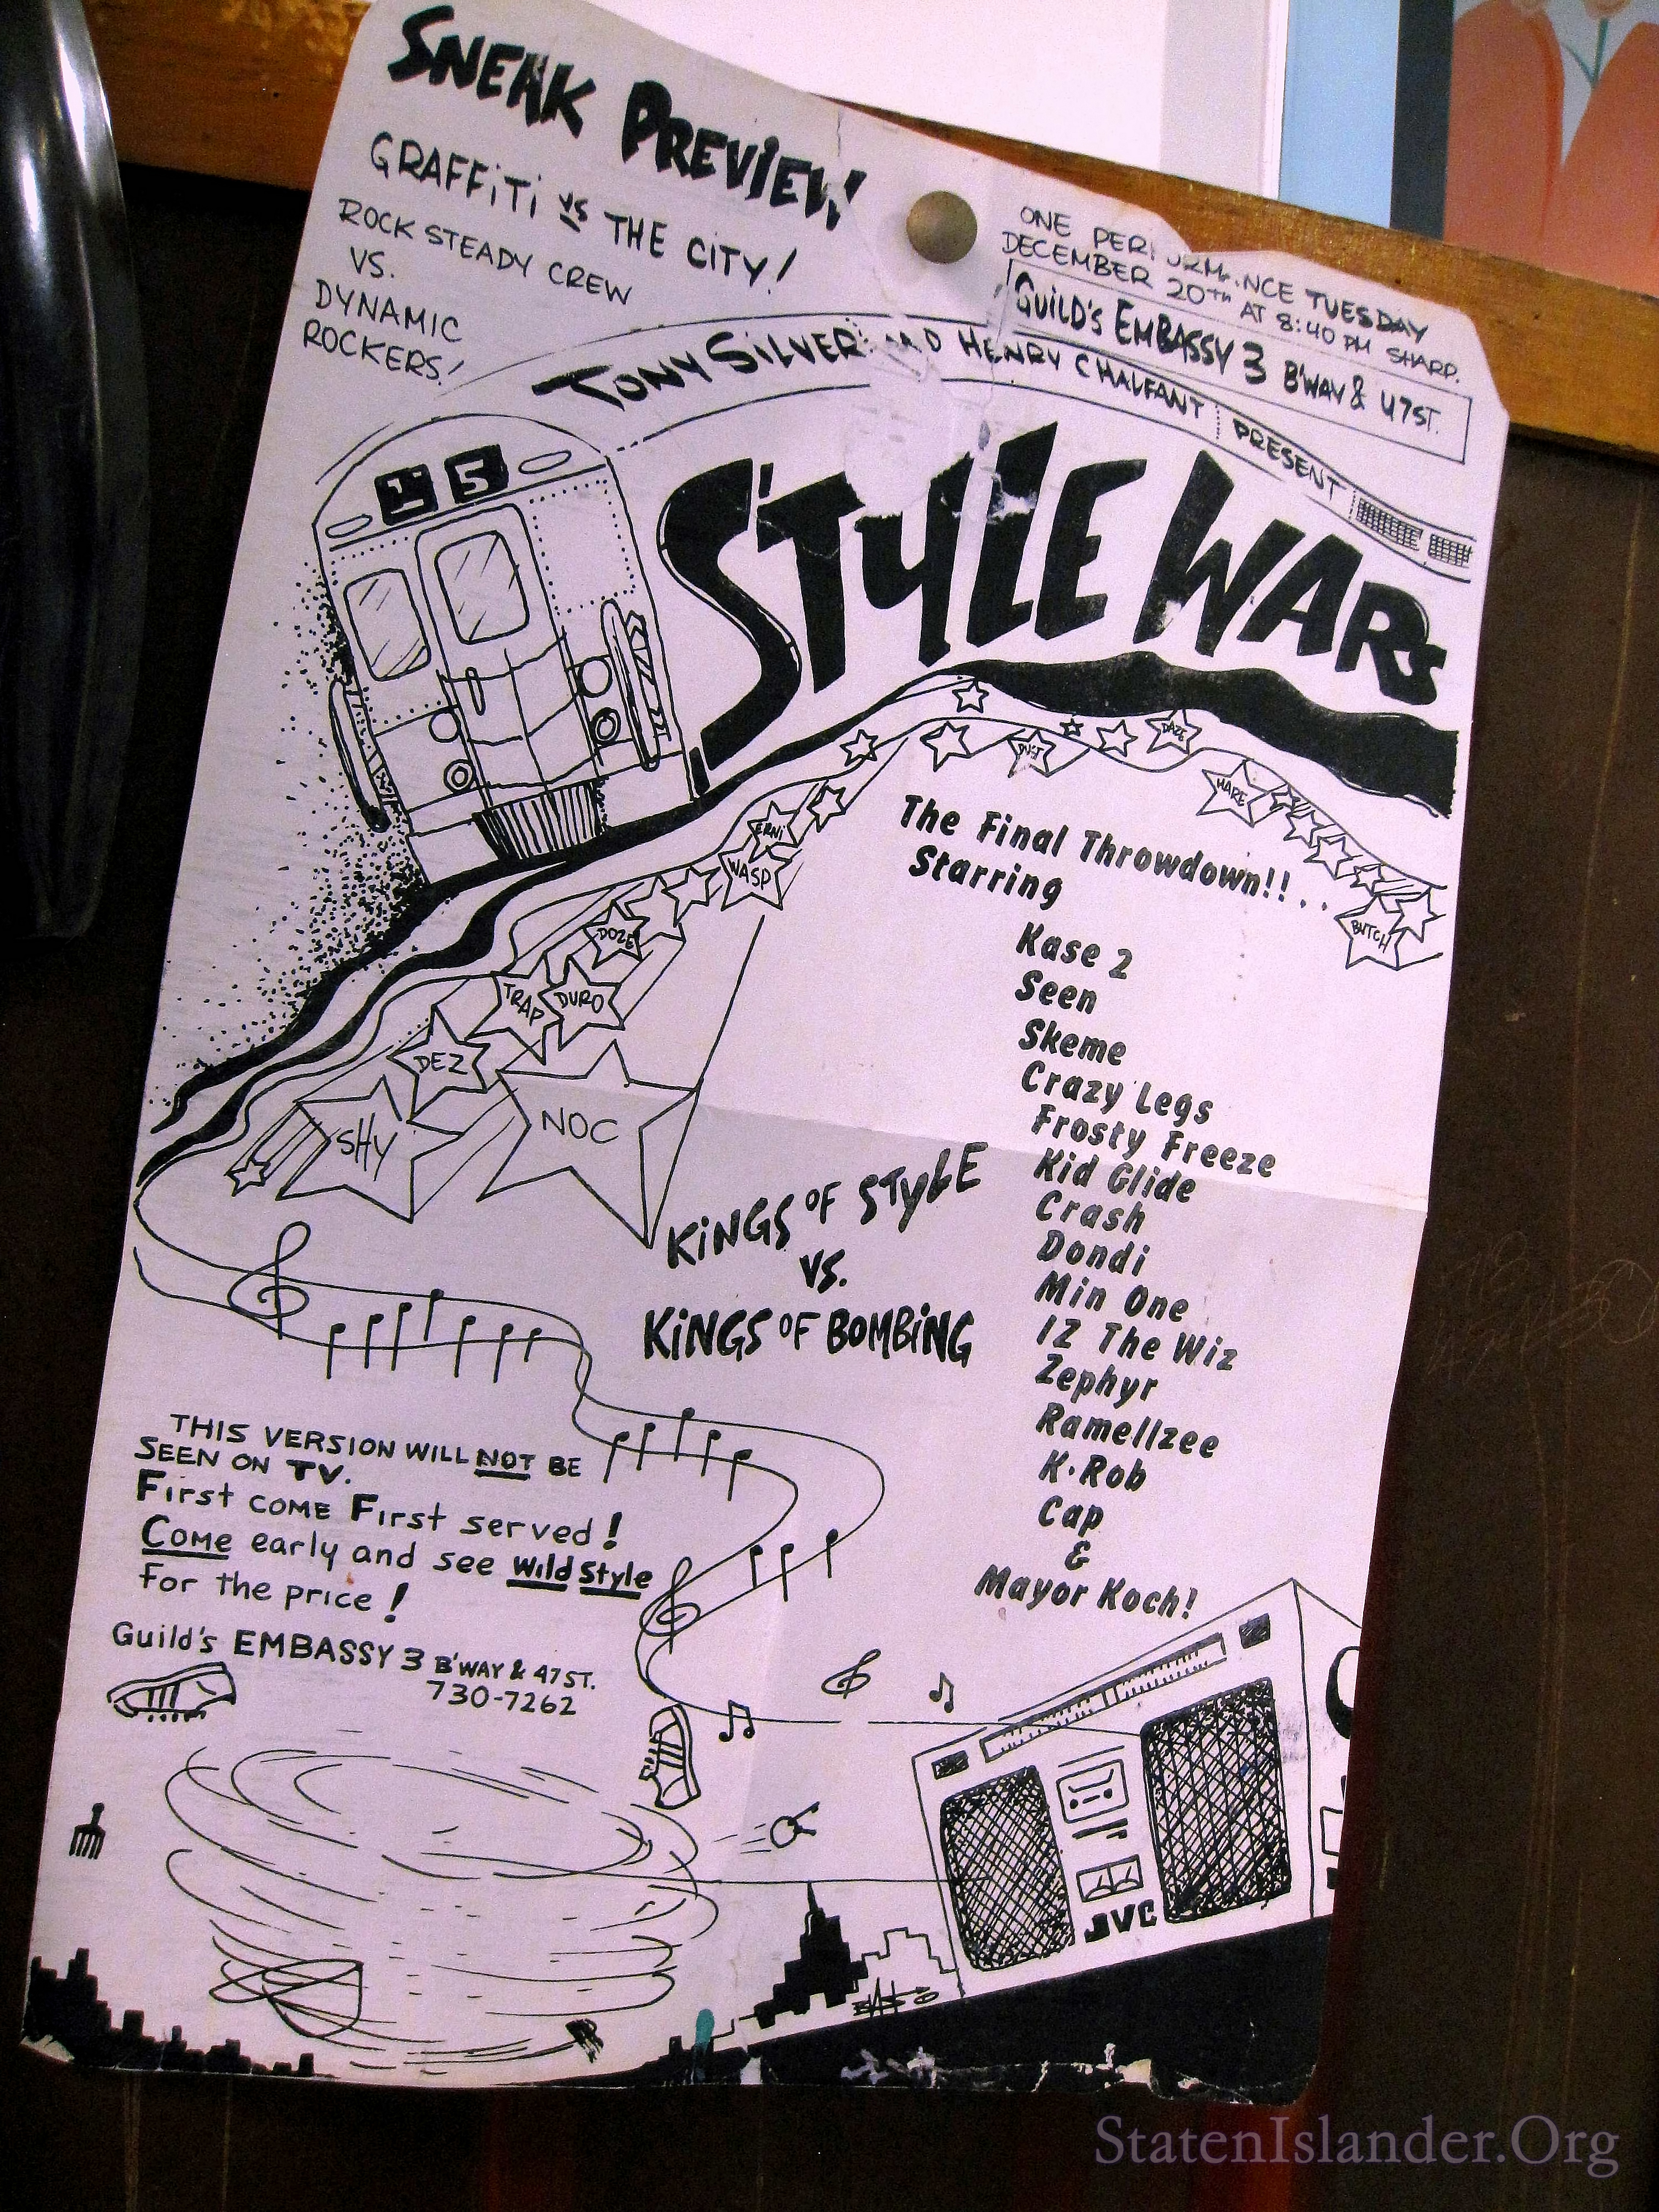 SNEAK PREVIEW
GRAFFiTi vs THE CiTY!
ROCK STEADY CREW
VS.
DYNAMIC
ROCKERS!
ONE PERFORMANCE TUESDAY
DECEMBER 20TH AT 8:40 PM SHARP.
GUiLD'S EMBASSY 3 B'WAY & 47 ST.
TONY SiLVER AND HENRY CHALFANT PRESENT
15
STYLE WARS
DUST
DAZE
MARE
ERNI
WASP
BUTCH
DOZE
TRAP
DURO
DEZ
SHY
NOC
The Final Throwdown!!..
Starring
Kase 2
Seen
Skeme
Crazy Legs
Frosty Freeze
Kid Glide
Crash
Dondi
Min One
IZ The Wiz
Zephyr
Ramellzee
K·Rob
Cap
&
Mayor Koch!
KiNGS OF STYLE
VS.
KiNGS OF BOMBiNG
THIS VERSION WILL NOT BE
SEEN ON TV.
First COME First served!
COME early and see Wild Style
for the price!
Guild's EMBASSY 3 B'WAY & 47 ST.
730-7262
JVC
StatenIslander.Org